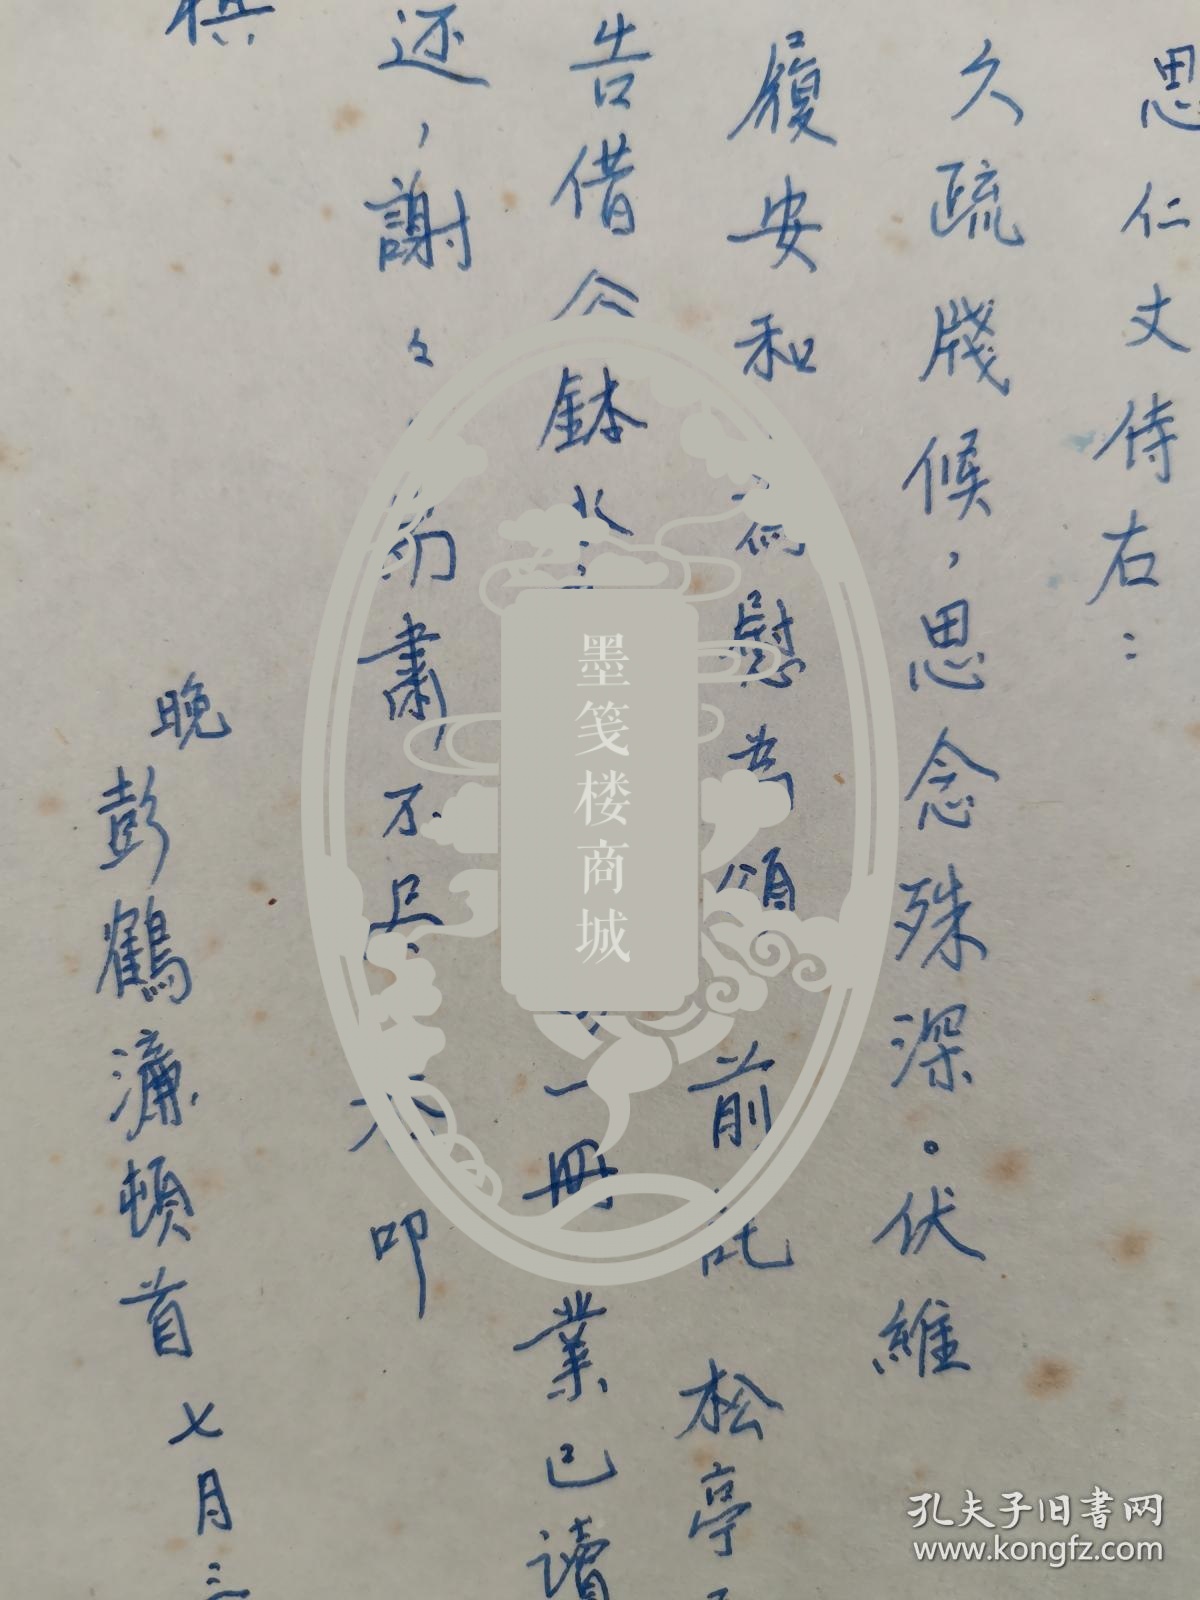 思仁丈侍右：
久疏牋候，思念殊深。伏維
履安和為慰為頌 前託 松亭
告借 鉢水 一冊業已讀
还，謝々 肅，不 叩
祺
晚
彭鶴濂頓首 七月
墨笺楼商城
孔夫子旧书网
www.kongfz.com